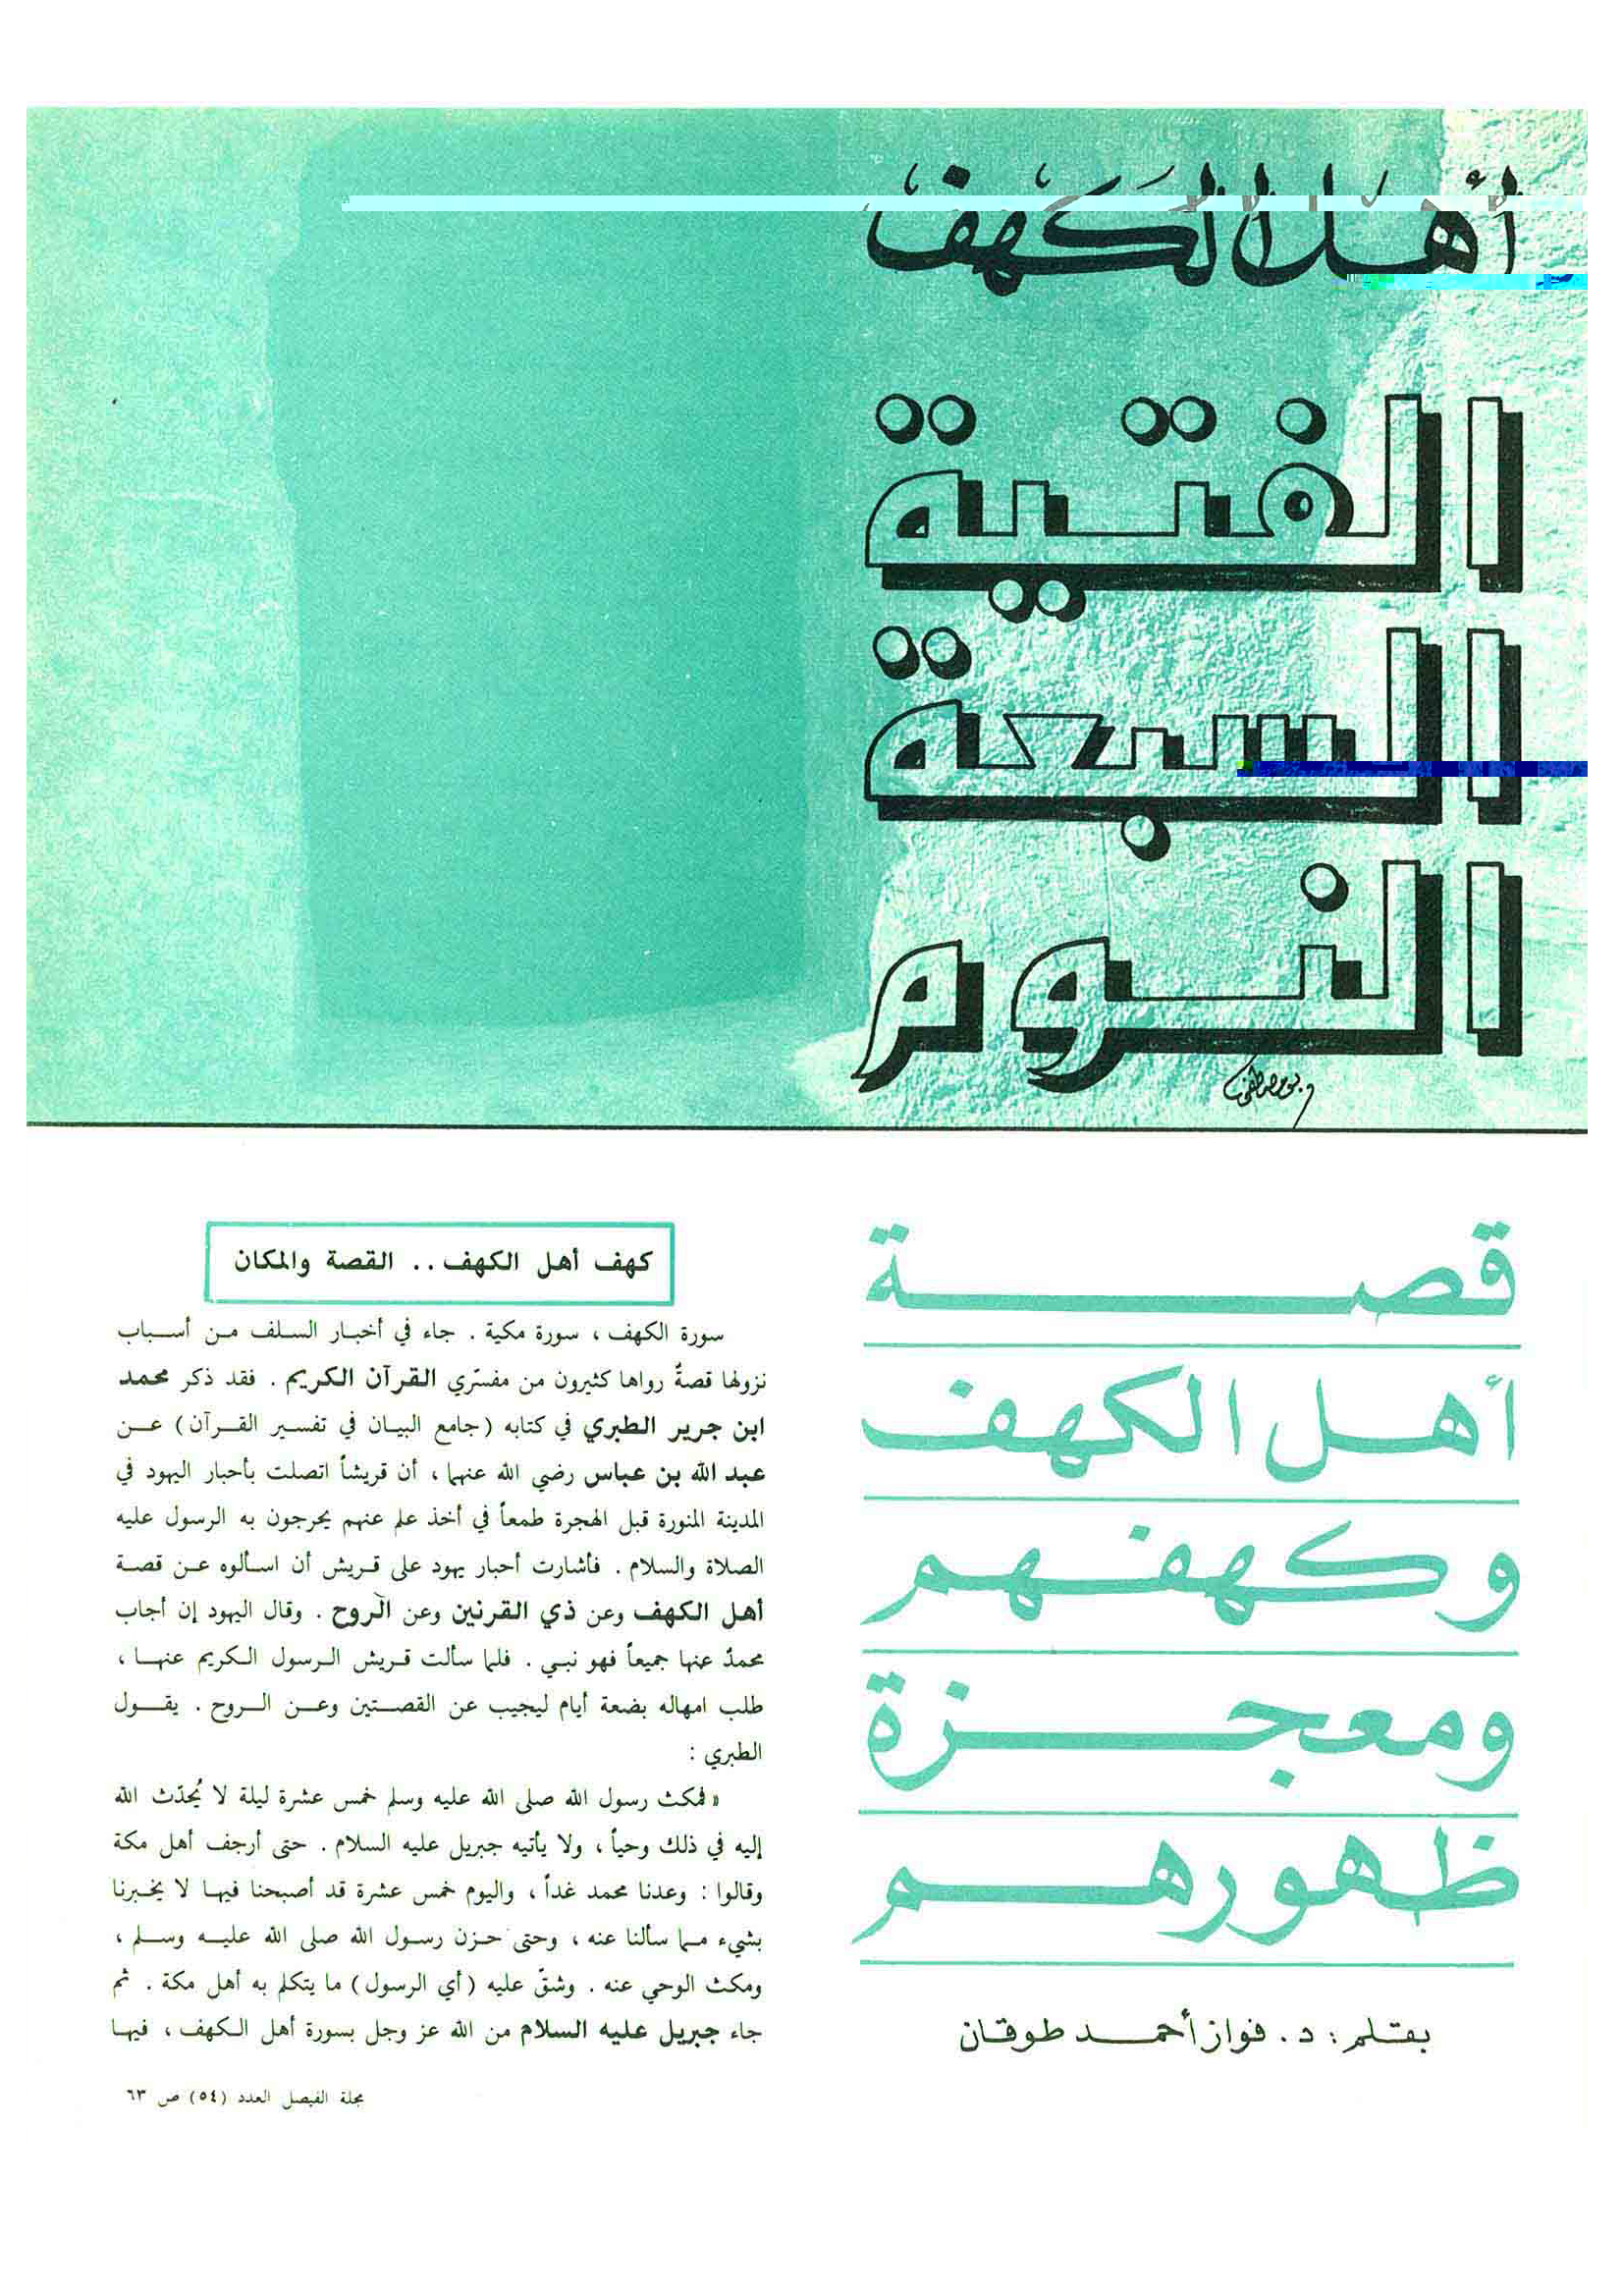 أهل الكهف
الفتية
السبعة
النوم
قصة
أهل الكهف
وكهفهم
ومعجزة
ظهورهم
بقلم : د. فواز أحمد طوقان
كهف أهل الكهف .. القصة والمكان
سورة الكهف ، سورة مكية . جاء في أخبار السلف من أسباب
نزولها قصةٌ رواها كثيرون من مفسّري القرآن الكريم . فقد ذكر محمد
ابن جرير الطبري في كتابه (جامع البيان في تفسير القرآن) عن
عبد الله بن عباس رضي الله عنهما ، أن قريشاً اتصلت بأحبار اليهود في
المدينة المنورة قبل الهجرة طمعاً في أخذ علم عنهم يحرجون به الرسول عليه
الصلاة والسلام . فأشارت أحبار يهود على قريش أن اسألوه عن قصة
أهل الكهف وعن ذي القرنين وعن الروح . وقال اليهود إن أجاب
محمدٌ عنها جميعاً فهو نبي . فلما سألت قريش الرسول الكريم عنها ،
طلب امهاله بضعة أيام ليجيب عن القصتين وعن الروح . يقول
الطبري :
« فمكث رسول الله صلى الله عليه وسلم خمس عشرة ليلة لا يُحدّث الله
إليه في ذلك وحياً ، ولا يأتيه جبريل عليه السلام . حتى أرجف أهل مكة
وقالوا : وعدنا محمد غداً ، واليوم خمس عشرة قد أصبحنا فيها لا يخبرنا
بشيء مما سألنا عنه ، وحتى حزن رسول الله صلى الله عليه وسلم ،
ومكث الوحي عنه . وشقّ عليه (أي الرسول) ما يتكلم به أهل مكة . ثم
جاء جبريل عليه السلام من الله عز وجل بسورة أهل الكهف ، فيها
مجلة الفيصل العدد (٥٤) ص ٦٣